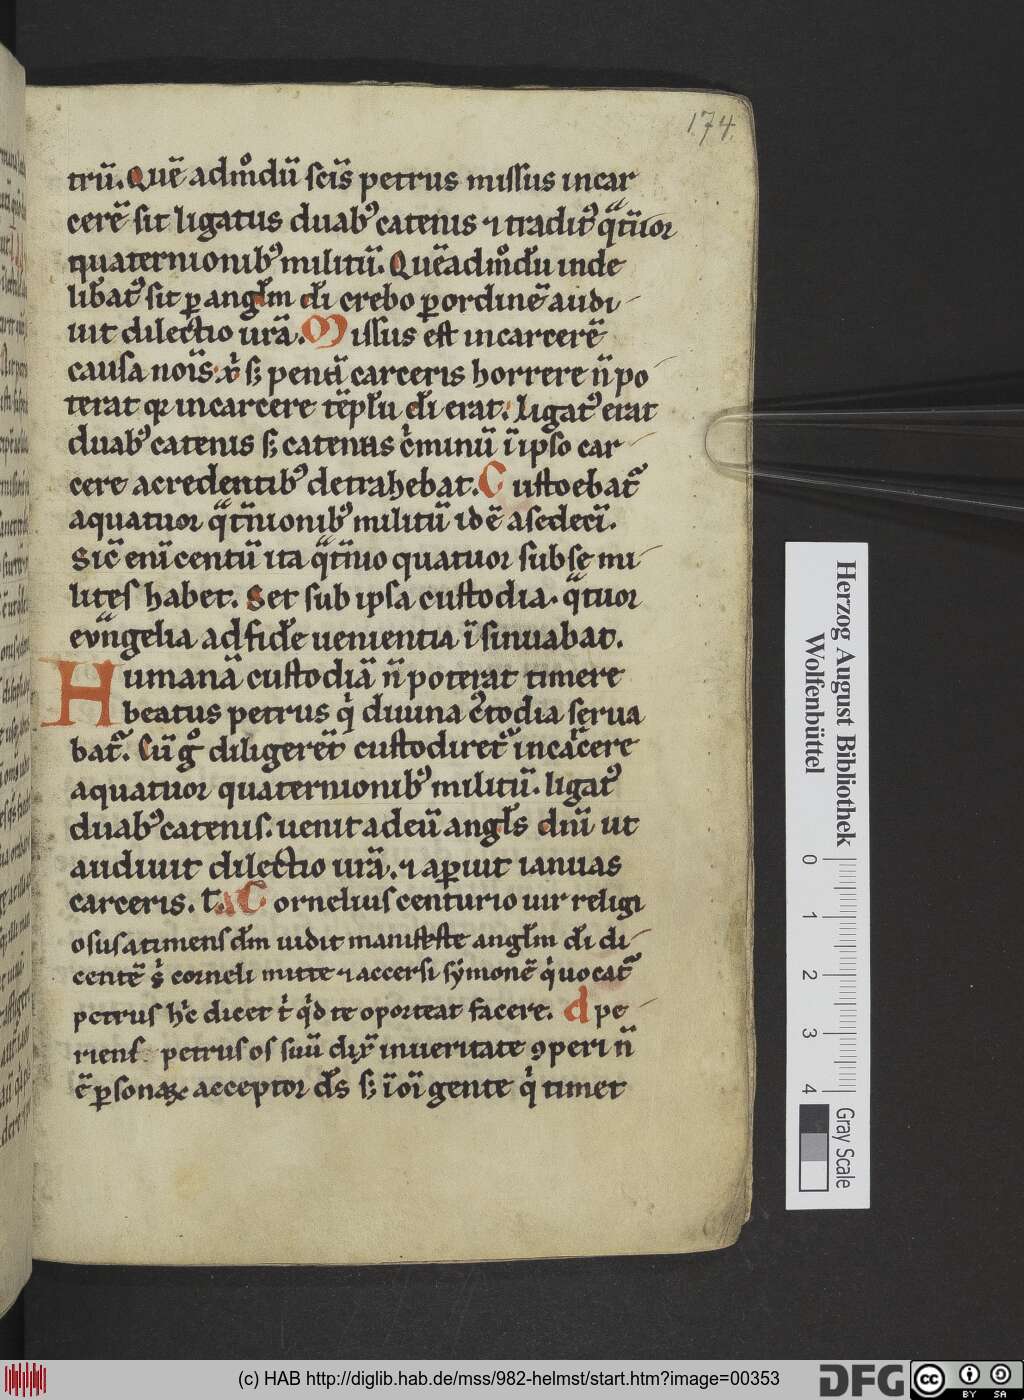 174.
trū. Quē admͦdū scīs petrus missus incar
cerē sit ligatus duabꝰ catenis ⁊ traditꝰ qͣt̄uor
quaternionibꝰ militū. Quēadmͦdū inde
lib̄atꝰ sit ꝑ angl̄m dī erebo ꝑordinē audi
uit dilectio ur̄a. Missus est incarcerē
causa noīs xp̄i sꝫ penā carceris horrere n̄ po
terat qꝛ incarcere tēplū dī erat. ligatꝰ erat
duabꝰ catenis sꝫ catenas cͥminū ī ipso car
cere a credentibꝰ detrahebat. Custoebat᷑
aquatuor qͣt̄nionibꝰ militū idē asedecī.
Sic̄ enī centū ita qͣt̄nio quatuor sub se mi
lites habet. Set sub ipsa custodia. qͣtuor
evͣngelia ad fidē uenientia īsinuabat.
Humanā custodiā n̄ poterat timere
beatus petrus qͥ diuina c᷑todia serua
bat᷑. Cū gͦ diligeret᷑ custodiret᷑ incar̄cere
aquatuor quaternionibꝰ militū. ligatꝰ
duabꝰ catenis. uenit ad eū angl̄s dn̄i ut
audiuit dilectio ur̄a. ⁊ aꝑuit ianuas
carceris. T A Cornelius centurio uir religi
osus atimens dm̄ uidit manifeste angl̄m dī di
centē sͥ corneli mitte ⁊ accersi symonē qͥ uocat᷑
petrus hͥc dicet tͥ qͥd te oporteat facere. Ape
riens petrus os suū dix̄ inueritate ꝯperi n̄
ē ꝑsonaꝝ acceptor ds̄ sꝫ ī oī gente qͥ timet
Herzog August Bibliothek
Wolfenbüttel
0 1 2 3 4
Gray Scale
(c) HAB http://diglib.hab.de/mss/982-helmst/start.htm?image=00353
DFG
cc BY SA